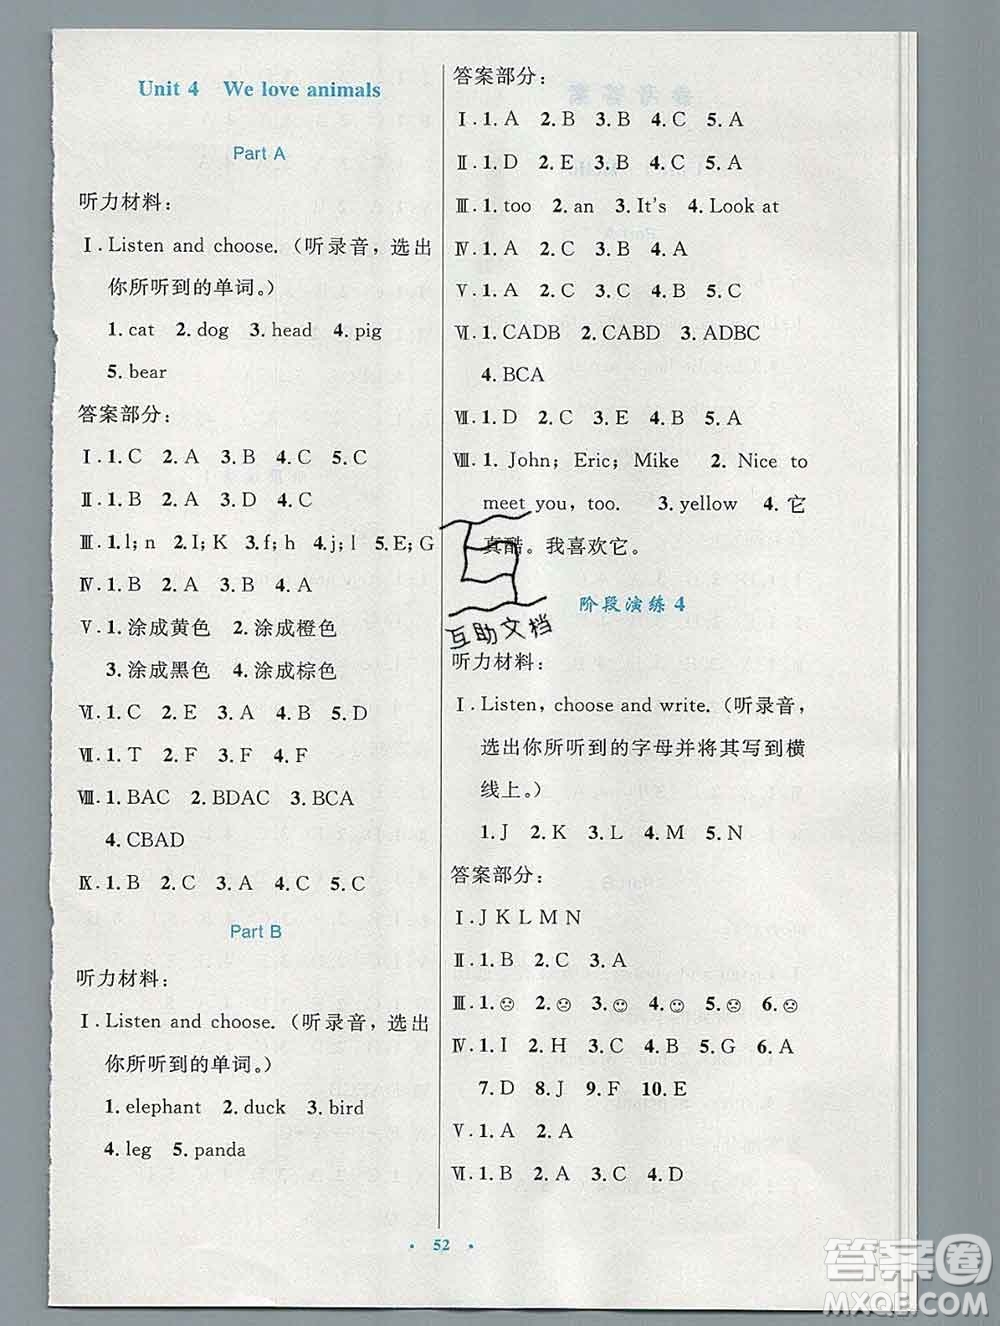 Unit 4 We love animals
Part A
听力材料：
Ⅰ. Listen and choose.（听录音，选出
你所听到的单词。）
1. cat 2. dog 3. head 4. pig
5. bear
答案部分：
Ⅰ. 1. C 2. A 3. B 4. C 5. C
Ⅱ. 1. B 2. A 3. D 4. C
Ⅲ. 1. l；n 2. I；K 3. f；h 4. j；l 5. E；G
Ⅳ. 1. B 2. A 3. A 4. B
Ⅴ. 1. 涂成黄色 2. 涂成橙色
3. 涂成黑色 4. 涂成棕色
Ⅵ. 1. C 2. E 3. A 4. B 5. D
Ⅶ. 1. T 2. F 3. F 4. F
Ⅷ. 1. BAC 2. BDAC 3. BCA
4. CBAD
Ⅸ. 1. B 2. C 3. C 4. A 5. B
Part B
听力材料：
Ⅰ. Listen and choose.（听录音，选出
你所听到的单词。）
1. elephant 2. duck 3. bird
4. leg 5. panda
答案部分：
Ⅰ. 1. A 2. B 3. B 4. C 5. A
Ⅱ. 1. D 2. E 3. B 4. C 5. A
Ⅲ. 1. too 2. an 3. It's 4. Look at
Ⅳ. 1. A 2. C 3. B 4. A
Ⅴ. 1. A 2. C 3. C 4. B 5. C
Ⅵ. 1. CADB 2. CABD 3. ADBC
4. BCA
Ⅶ. 1. D 2. C 3. E 4. B 5. A
Ⅷ. 1. John；Eric；Mike 2. Nice to
meet you，too. 3. yellow 4. 它
真酷。我喜欢它。
互助文档
阶段演练 4
听力材料：
Ⅰ. Listen，choose and write.（听录音，
选出你所听到的字母并将其写到横
线上。）
1. J 2. K 3. L 4. M 5. N
答案部分：
Ⅰ. J K L M N
Ⅱ. 1. B 2. C 3. A
Ⅲ. 1. ☹ 2. ☹ 3. ☺ 4. ☺ 5. ☹ 6. ☹
Ⅳ. 1. I 2. H 3. C 4. B 5. G 6. A
7. D 8. J 9. F 10. E
Ⅴ. 1. A 2. A
Ⅵ. 1. B 2. A 3. C 4. D
52
答案圈
MXQE.COM